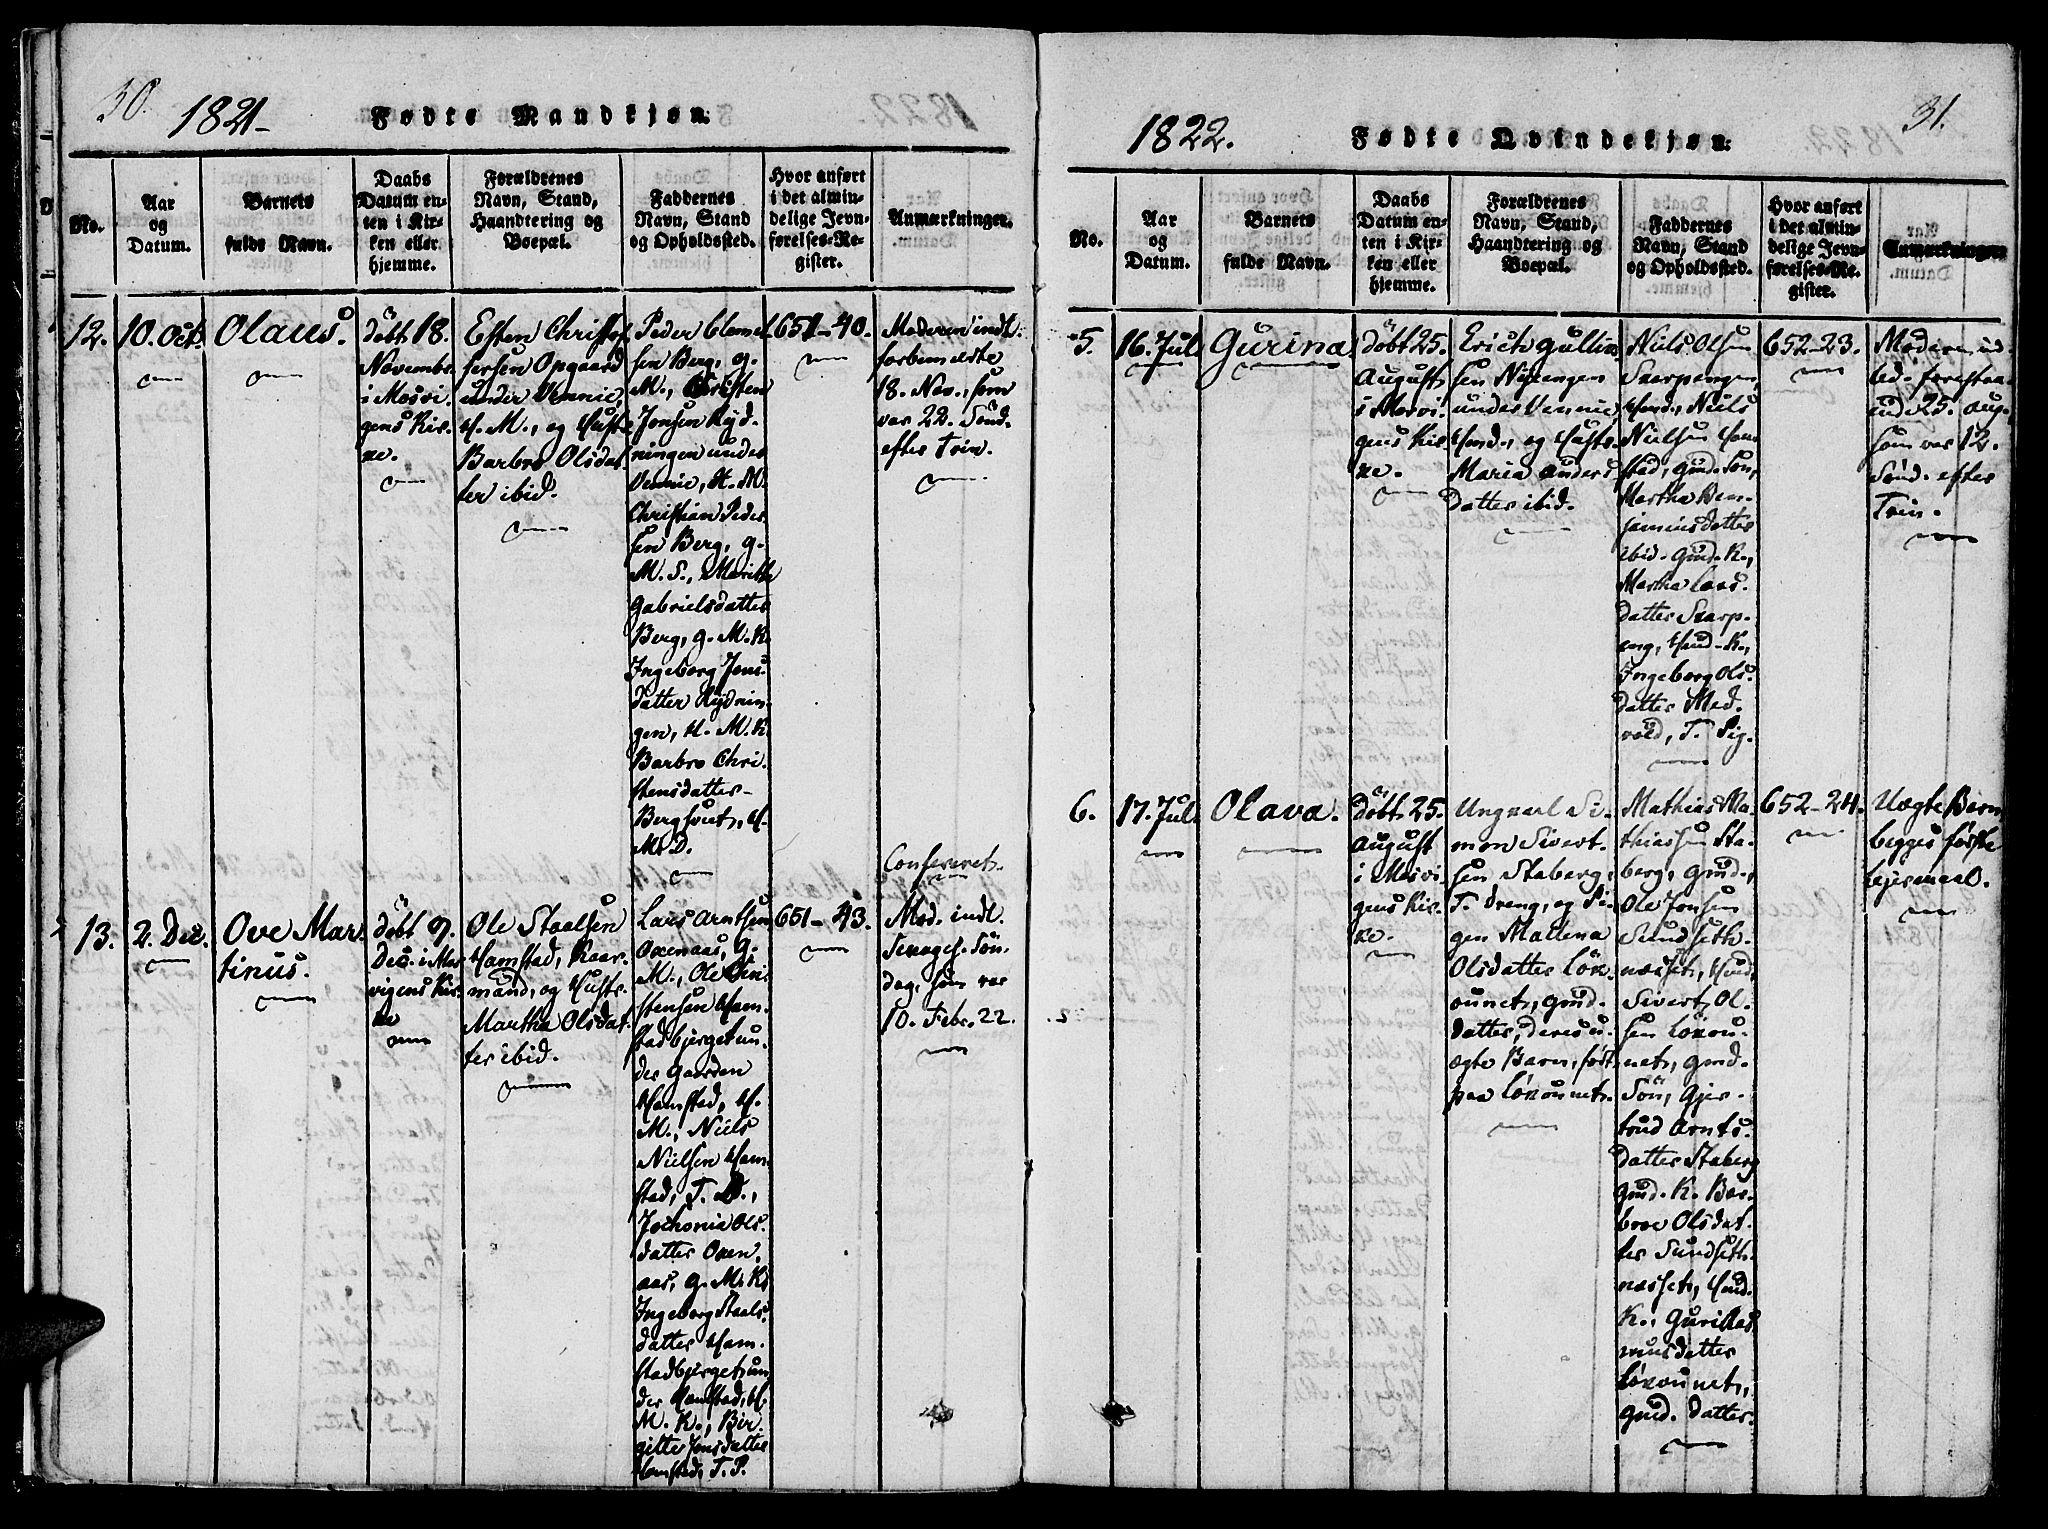 30.
1821-
Fødte Mandkjøn.
No.
Aar
og
Datum.
Barnets
fulde Navn.
Daabs
Datum en-
ten i Kir-
ken eller
hjemme.
Forældrenes
Navn, Stand,
Haandtering og
Boepæl.
Faddernes
Navn, Stand
og Opholdssted.
Hvor anført
i det almin-
delige Jevn-
førelses-Re-
gister.
Anmærkninger.
12.
10. Oct.
Olaus.
döbt 18.
Novembr.
i Mosvi-
gens Kir-
ke.
Esten Christof-
fersen Opgaard
under Vennie,
H. M., og Hustr.
Barbro Olsdat-
ter ibid.
Peder Clemet-
sen Berg, g.
M., Christen
Jonsen Ryd-
ningen under
Vennie, H. M.
Christian Peder-
sen Berg, g.
M. S., Marith
Gabrielsdatter
Berg, g. M. K.
Ingeborg Jons-
datter Rydnin-
gen, H. M. K.
Barbro Chri-
stensdatter
Berg, H.
M. D.
651-40.
Moderen indl.
forbemeldte
18. Nov., som
var 22. Sönd.
efter Trin.
13.
2. Dec.
Ove Mar-
tinus.
döbt 9.
Dec. i Mos-
vigens Kir-
ke
Ole Staalsen
Hamstad, Kaar-
mand, og Hustr.
Martha Olsdat-
ter ibid.
Lars Arntsen
Oxenaas, g.
M., Ole Chri-
stensen Ham-
stadbjerget un-
der Gaarden
Hamstad, H.
M., Niels
Nielsen Ham-
stad, T. D.,
Ols-
datter Oxen-
aas, g. M. K.
Ingeborg Staals-
datter Ham-
stadbjerget un-
der Hamstad, H.
M. K., Bir-
gitte Jonsdatter
Hamstad, T. P.
651-43.
Confereret.
Mod. indl.
Sexages. Sön-
dag, som var
10. Febr. 22.
31.
1822.
Fødte Qvindekjøn.
No.
Aar
og
Datum.
Barnets
fulde Navn.
Daabs
Datum en-
ten i Kir-
ken eller
hjemme.
Forældrenes
Navn, Stand,
Haandtering og
Boepæl.
Faddernes
Navn, Stand
og Opholdssted.
Hvor anført
i det almin-
delige Jevn-
førelses-Re-
gister.
Anmærkninger.
5.
16. Jul.
Gurina.
Döbt 25.
August
i Mosvi-
gens Kir-
ke.
Erich Gullik-
sen
under Vennie,
Hmd., og Hustr.
Maria Anders-
datter ibid.
Niels Olsen
Skarpengen,
Hmd., Niels
Nielsen Ham-
stad, Gmd. Sön,
Martha Ben-
jaminsdatter
ibid. Gmd. K.,
Martha Lars-
datter Skarp-
eng, Hmd. K.,
Ingeborg Ols-
datter Med-
vold, T. Pig.
652-23.
Moderen ind-
led. forestaa-
ende 25. Aug.,
som var 12.
Sönd. efter
Trin.
6.
17. Jul.
Olava.
Döbt 25.
August
i Mosvi-
gens Kir-
ke.
Ungkarl Si-
mon Sivert-
sen Staberg,
T. dreng, og Pi-
gen Mallena
Olsdatter Lök-
ounet, Gmd.
datter, deres u-
ægte Barn, född
paa Lökounet.
Mathias Ma-
thiassen Sta-
berg, Gmd.,
Ole Jonsen
Sundseth-
næsset, Hmd,
Sivert Ol-
sen Lökou-
net, Gmd.
Sön, Gjer-
trud Arnts-
datter Staberg
Gmd. K. Bar-
broe Olsdat-
ter Sundseth-
næsset, Hmd.
K., Guri Ras-
musdatter
Lökounet,
Gmd. datter.
652-24.
Uægte Barn
begges förste
Lejermaal.